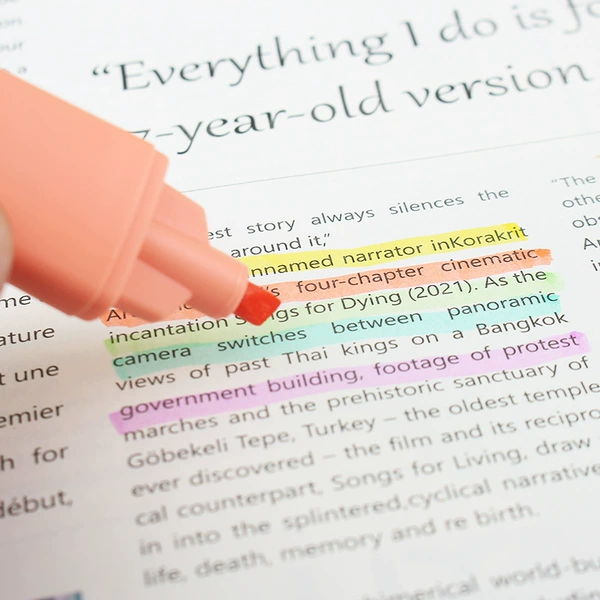 “Everything I do is fo
7-year-old version
est story always silences the
around it,”
nnamed narrator inKorakrit
's four-chapter cinematic
incantation Songs for Dying (2021). As the
camera switches between panoramic
views of past Thai kings on a Bangkok
government building, footage of protest
marches and the prehistoric sanctuary of
Göbekeli Tepe, Turkey – the oldest temple
ever discovered – the film and its recipro
cal counterpart, Songs for Living, draw
in into the splintered,cyclical narrative
life, death, memory and re birth.
himerical world-bu
me
ature
t une
emier
h for
début,
“The
othe
obs
A
i